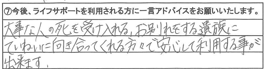 ⑦今後、ライフサポートを利用される方に一言アドバイスをお願いいたします。
大事な人の死を受け入れる、お別れをする遺族に
ていねいに向き合ってくれる方々で安心して利用する事が
出来ます。